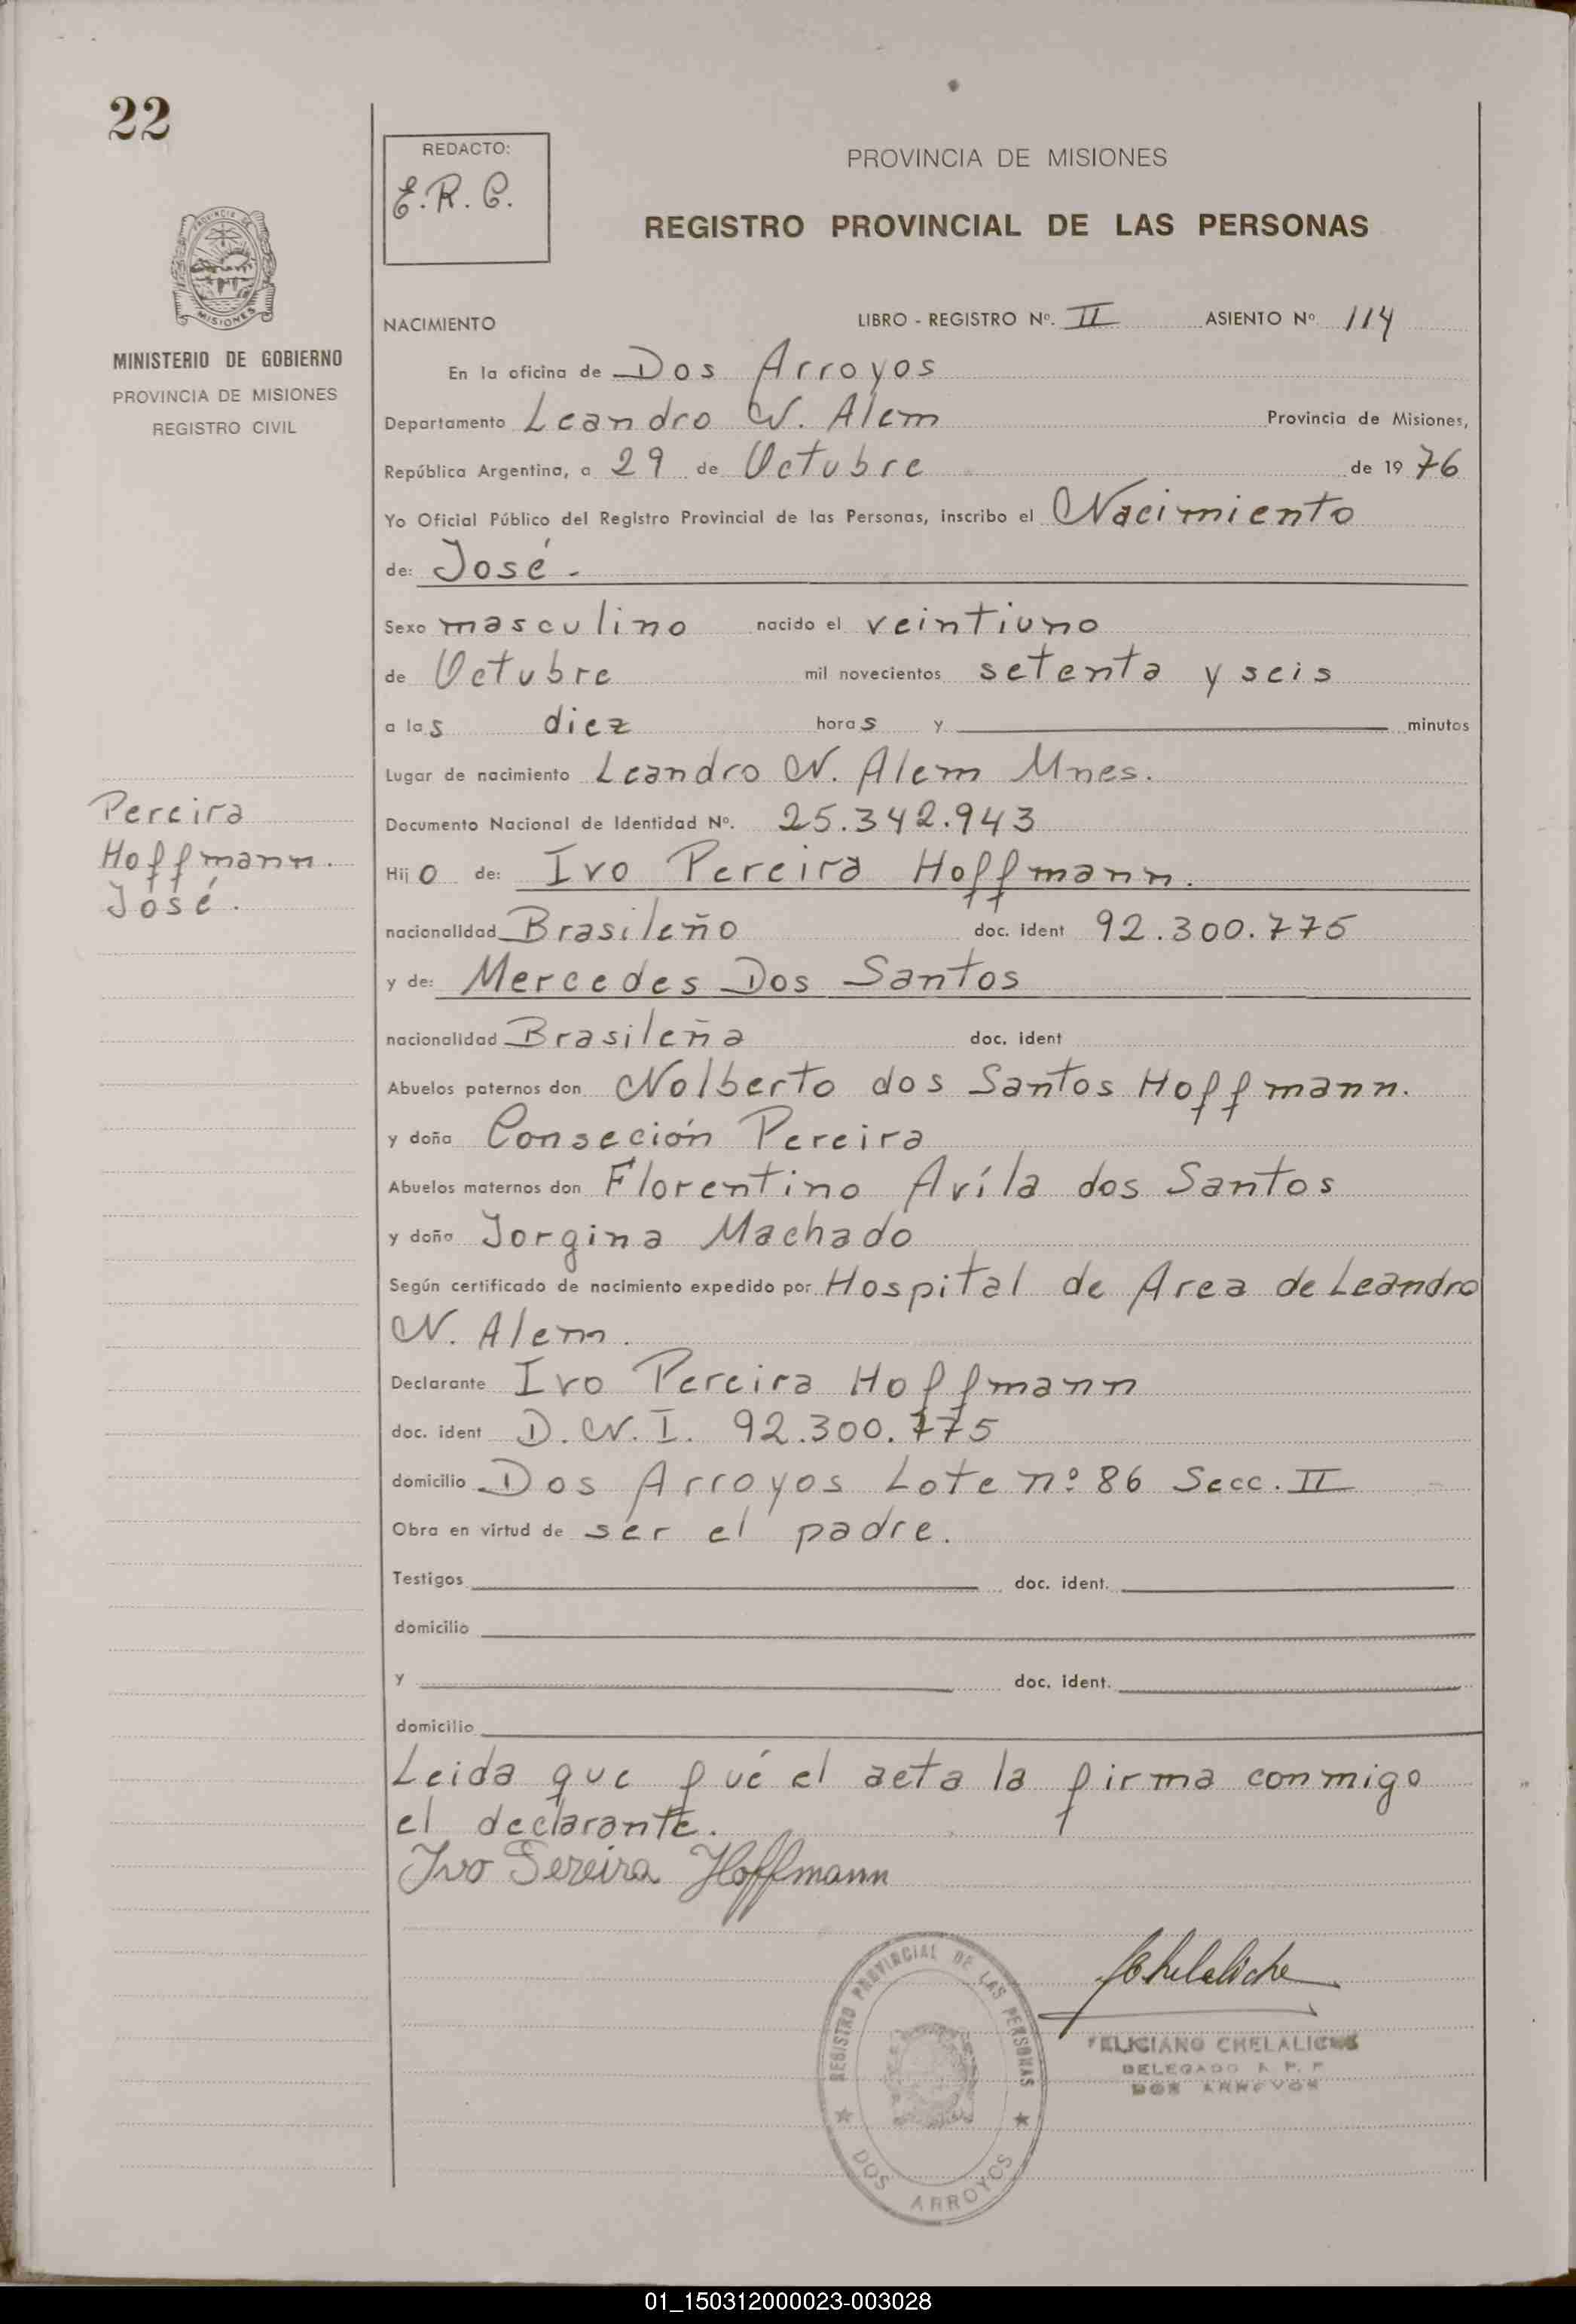 22
REDACTO:
E.R.C.
PROVINCIA DE MISIONES
REGISTRO PROVINCIAL DE LAS PERSONAS
PROVINCIA DE
MISIONES
MINISTERIO DE GOBIERNO
PROVINCIA DE MISIONES
REGISTRO CIVIL
NACIMIENTO LIBRO - REGISTRO Nº. II ASIENTO Nº 114
En la oficina de Dos Arroyos
Departamento Leandro N. Alem Provincia de Misiones,
República Argentina, a 29 de Octubre de 19 76
Yo Oficial Público del Registro Provincial de las Personas, inscribo el Nacimiento
de: José.-
Sexo masculino nacido el veintiuno
de Octubre mil novecientos setenta y seis
a las diez horas y minutos
Lugar de nacimiento Leandro N. Alem Mnes.
Pereira
Hoffmann.
José.
Documento Nacional de Identidad Nº. 25.342.943
Hijo de: Ivo Pereira Hoffmann.
nacionalidad Brasileño doc. ident 92.300.775
y de: Mercedes Dos Santos
nacionalidad Brasileña doc. ident
Abuelos paternos don Nolberto dos Santos Hoffmann.
y doña Conseción Pereira
Abuelos maternos don Florentino Avíla dos Santos
y doña Jorgina Machado
Según certificado de nacimiento expedido por Hospital de Area de Leandro
N. Alem.
Declarante Ivo Pereira Hoffmann
doc. ident D.N.I. 92.300.775
domicilio Dos Arroyos Lote nº 86 Secc. II
Obra en virtud de ser el padre.
Testigos doc. ident.
domicilio
y doc. ident.
domicilio
Leida que fué el acta la firma conmigo
el declarante.
Ivo Pereira Hoffmann
REGISTRO PROVINCIAL DE LAS PERSONAS
DOS ARROYOS
FChelaliche
FELICIANO CHELALICHE
DELEGADO R. P. P.
DOS ARROYOS
01_150312000023-003028